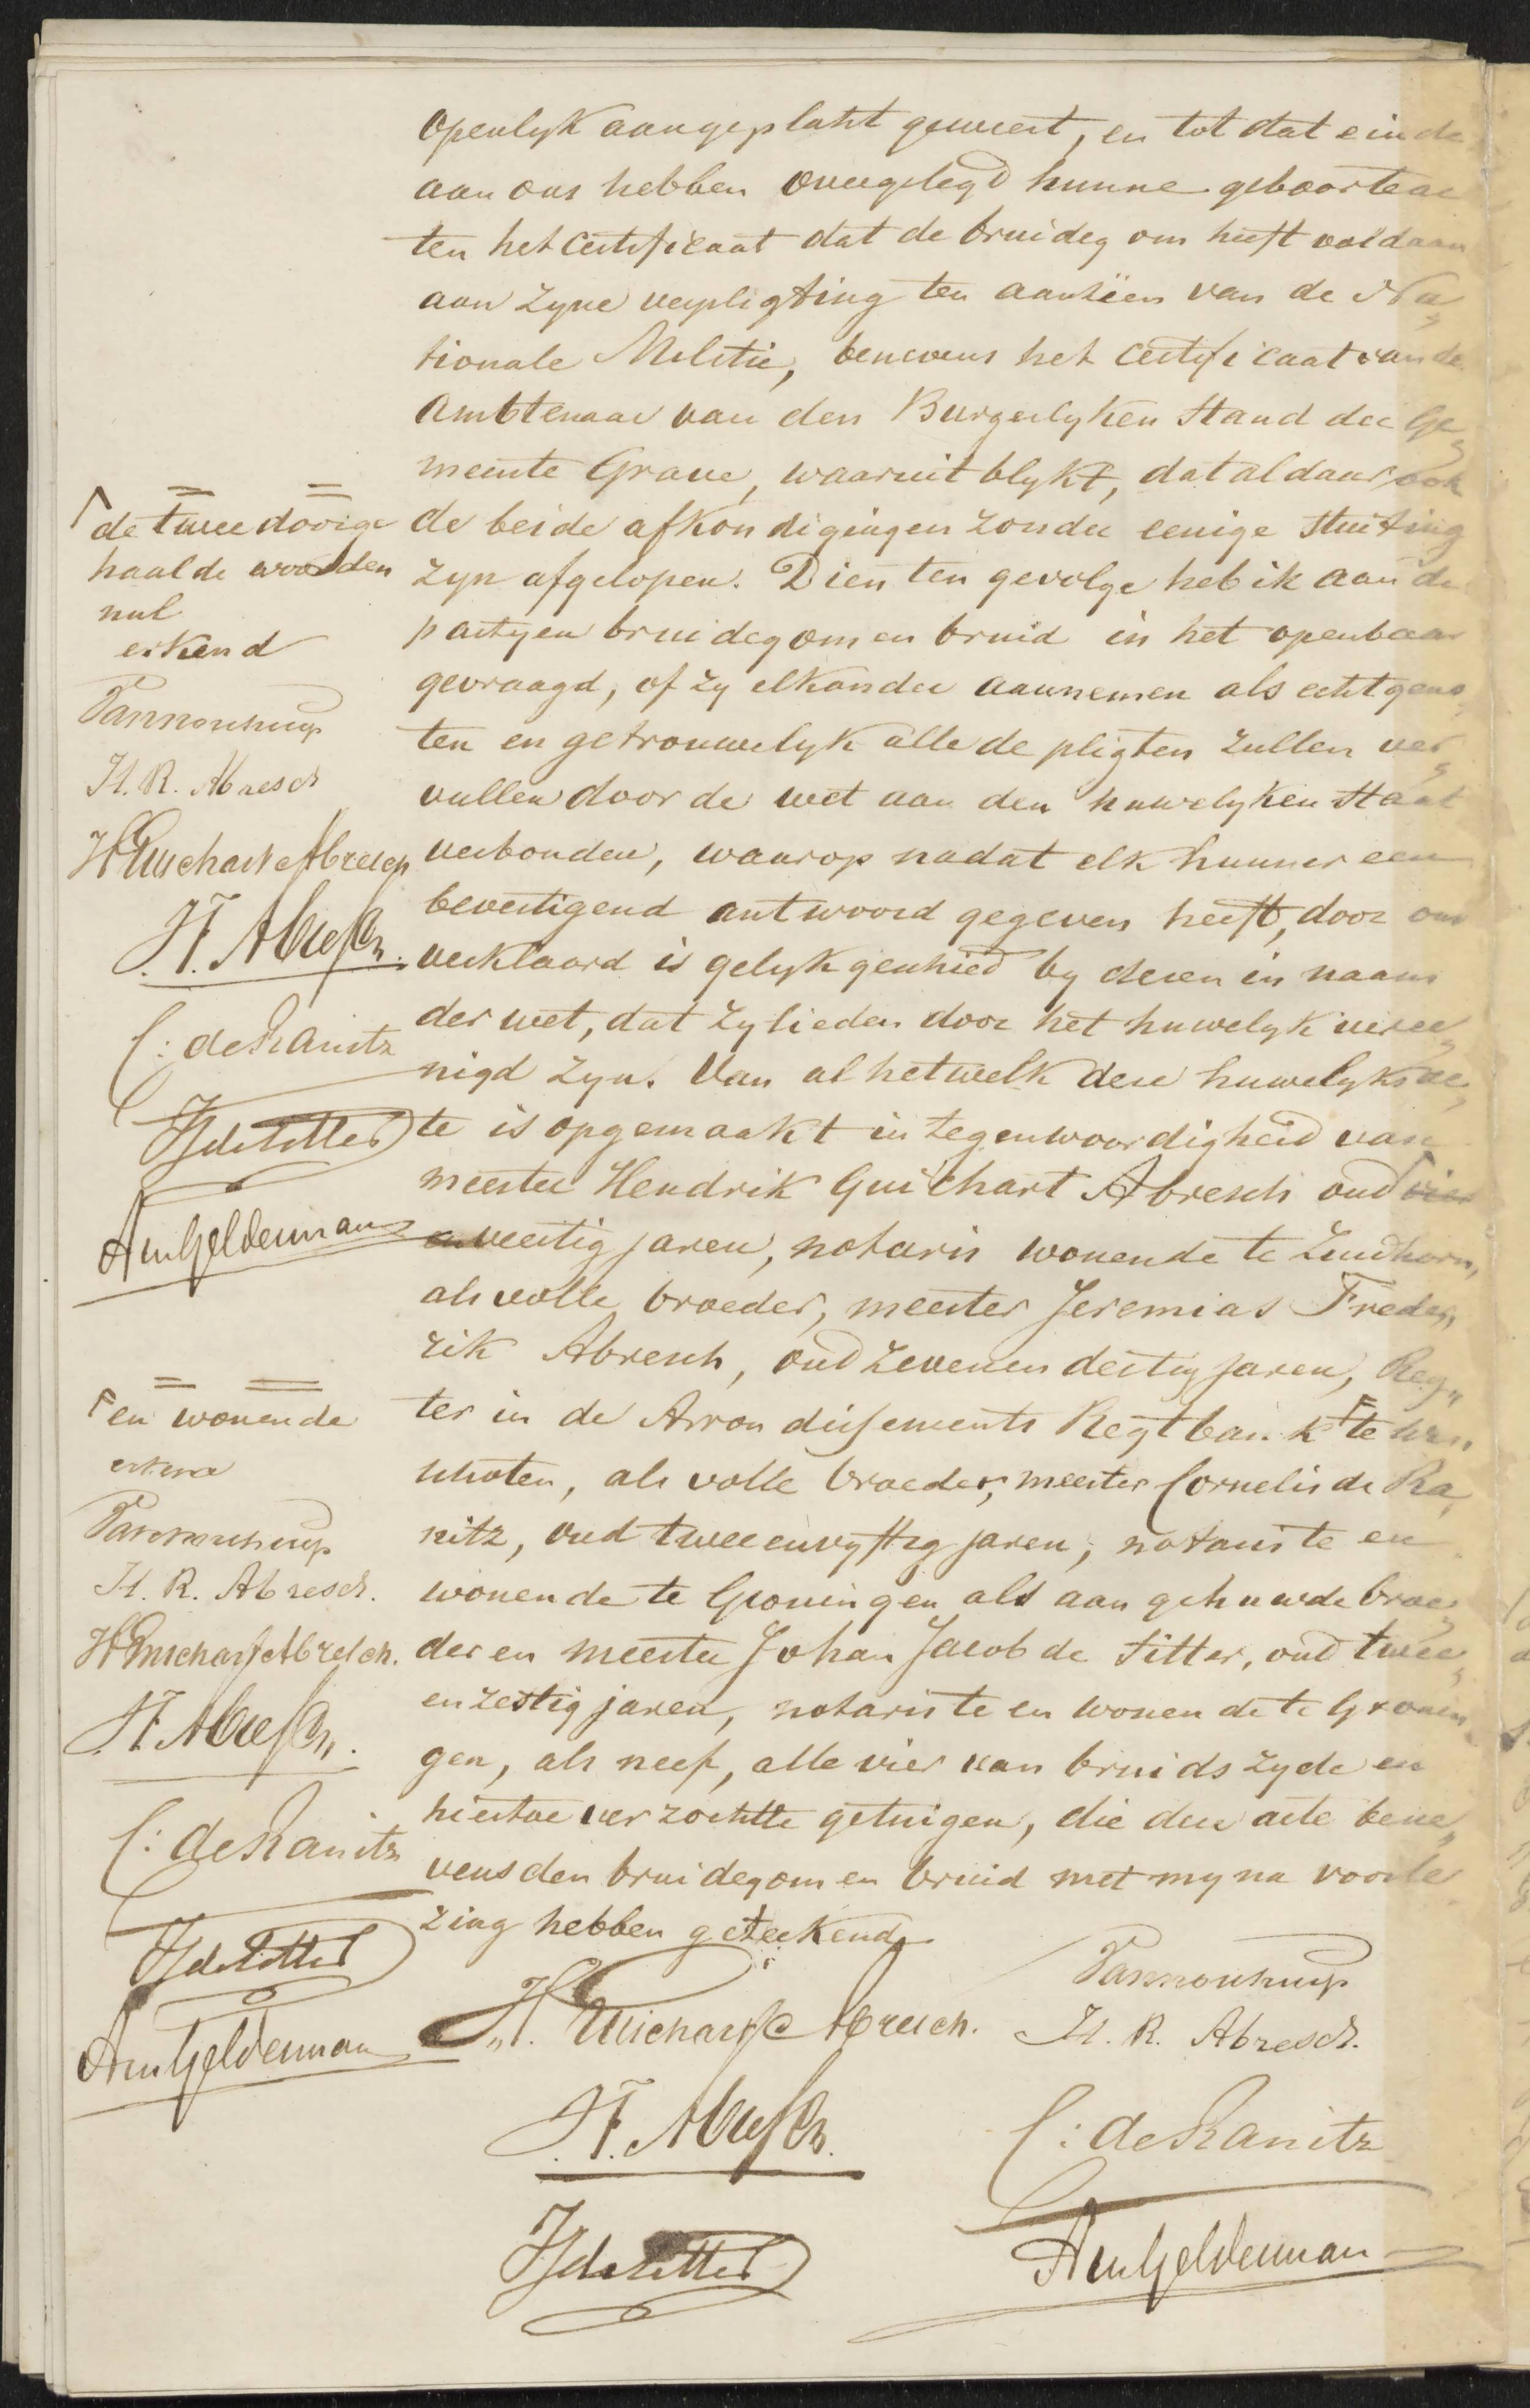 openlyk aangeplakt geweest, en tot dat einde
aan ons hebben overgelegd hunne geboorteac
ten het certificaat dat de bruidegom heeft voldaan
aan zyne verpligting ten aanzien van de Na„
tionale Militie, benevens het certificaat van de
Ambtenaar van den Burgerlyken Stand der Ge„
meente Grave, waaruit blykt, dat aldaar ook
de beide afkondigingen zonder eenige stuiting
zyn afgelopen. Dien ten gevolge heb ik aan de
partyen bruidegom en bruid in het openbaar
gevraagd, of zy elkander aannemen als echtgeno„
ten en getrouwelyk alle de pligten zullen ver„
vullen door de wet aan den huwelyken Staat
verbonden, waarop nadat elk hunner een
bevestigend antwoord gegeven heeft, door ons
verklaard is gelyk geschied by dezen in naam
der wet, dat zy lieden door het huwelyk veree„
nigd zyn. Van al hetwelk deze huwelyks ac„
te is opgemaakt in tegenwoordigheid van
meester Hendrik Guichart Abresch oud vier
en veertig jaren, notaris wonende te Zuidhorn,
als volle broeder, meester Jeremias Frede„
rik Abresch, oud zevenen dertig jaren, Reg„
ter in de Arrondissements Regtbank ┌ te Win„
schoten, als volle broeder, meester Cornelis de Ra„
nitz, oud tweeenvyftig jaren, notaris te en
wonende te Groningen als aangehuwde broe„
der en meester Johan Jacob de Sitter, oud twee„
enzestig jaren, notaris te en wonende te Gronin„
gen, als neef, alle vier van bruids zyde en
hiertoe verzochtte getuigen, die deze acte bene„
vens den bruidegom en bruid met my na voorle
zing hebben geteekend.
H. Guichart Abresch.
H. R. Abresch.
J. F. Abresch.
C: de Ranitz
JJ de Sitter
Gelderman
┌ de twee doorge
haalde woorden
nul
erkend
H. R. Abresch
H Guichart Abresch
J. F. Abresch.
C: de Ranitz
JJ de Sitter
Gelderman
┌ en wonende
erkend
H. R. Abresch.
H Guichart Abresch.
J. F. Abresch.
C: de Ranitz
JJ de Sitter
Gelderman